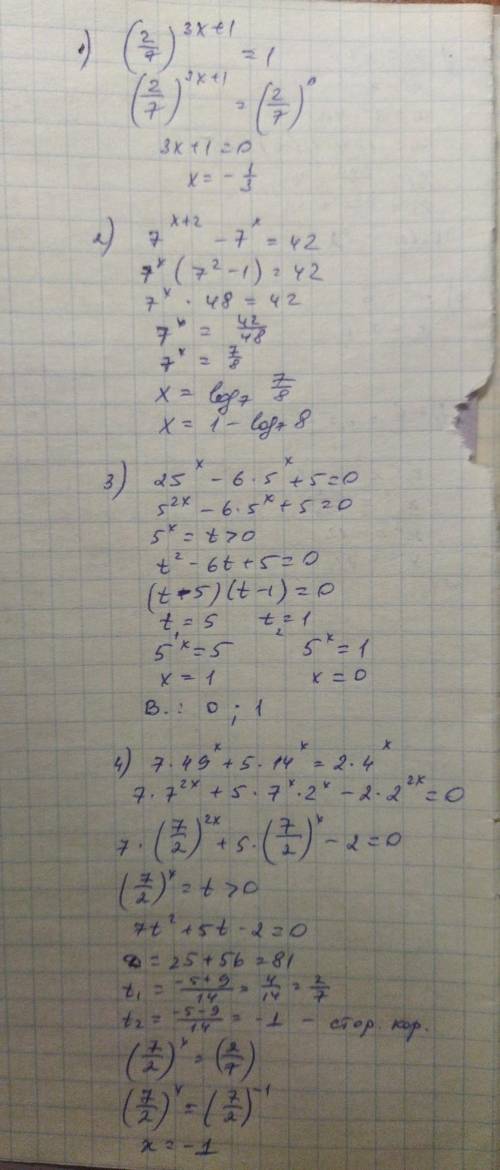 1) (2/7)^(3x+1) = 1
(2/7)^(3x+1) = (2/7)^0
3x+1=0
x = -1/3
2) 7^(x+2) - 7^x = 42
7^x (7^2-1) = 42
7^x · 48 = 42
7^x = 42/48
7^x = 7/8
x = log₇ 7/8
x = 1 - log₇ 8
3) 25^x - 6·5^x + 5 = 0
5^(2x) - 6·5^x + 5 = 0
5^x = t > 0
t² - 6t + 5 = 0
(t-5)(t-1) = 0
t₁ = 5 t₂ = 1
5^x = 5 5^x = 1
x = 1 x = 0
В.: 0 ; 1
4) 7·49^x + 5·14^x = 2·4^x
7·7^(2x) + 5·7^x·2^x - 2·2^(2x) = 0
7·(7/2)^(2x) + 5·(7/2)^x - 2 = 0
(7/2)^x = t > 0
7t² + 5t - 2 = 0
D = 25 + 56 = 81
t₁ = (-5+9)/14 = 4/14 = 2/7
t₂ = (-5-9)/14 = -1 - стор. кор.
(7/2)^x = (2/7)
(7/2)^x = (7/2)^(-1)
x = -1